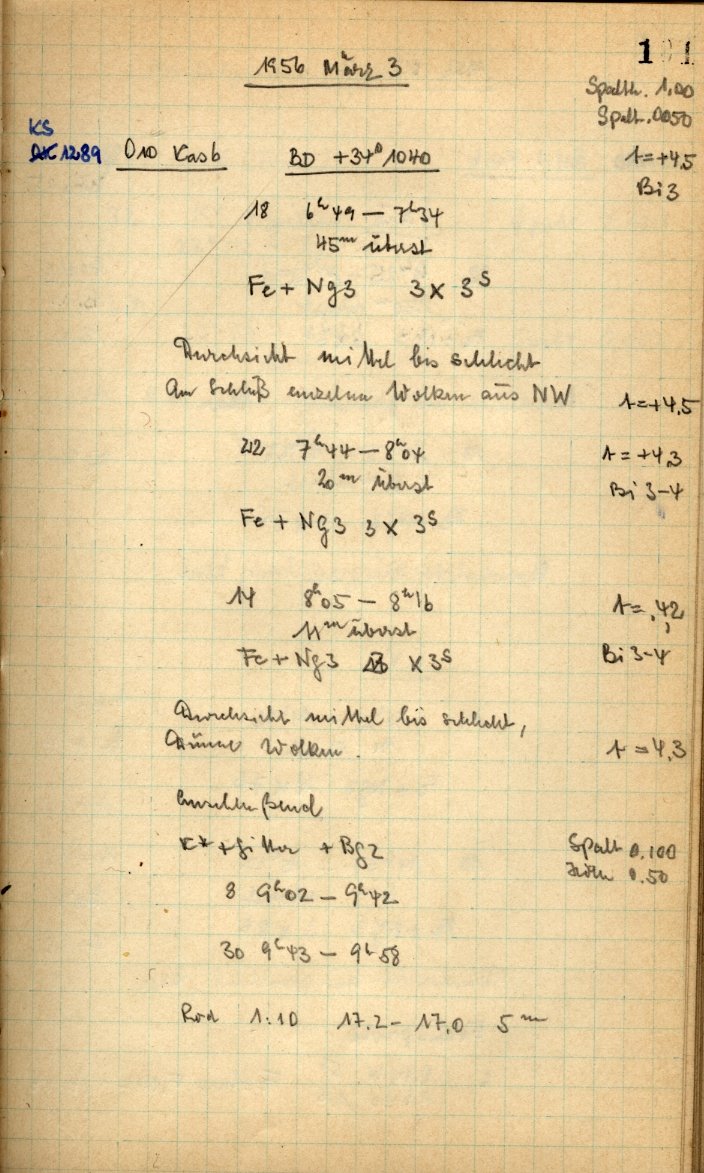 1 1
1956 März 3
Spalth. 1.00
Spalt. 0050
KS
1289 O10 Kasb BD +34° 1040 t=+4,5
Bi 3
18 6h 49 — 7h 34
45m überst
Fe + Ng3 3 x 3s
Durchsicht mittel bis schlecht
Am Schluß einzelne Wolken aus NW t=+4,5
22 7h 44 — 8h 04 t = +4,3
20m überst Bi 3-4
Fe + Ng3 3 x 3s
14 8h 05 — 8h 16 t = 42
11m überst
Fe + Ng3 x 3s Bi 3-4
Durchsicht mittel bis schlecht,
Dünne Wolken. t = 4,3
Anschließend
K* + Gitter + Bg2 Spalt 0.100
Höhe 0.50
8 9h 02 — 9h 42
30 9h 43 — 9h 58
1:10 17.2 — 17.0 5m